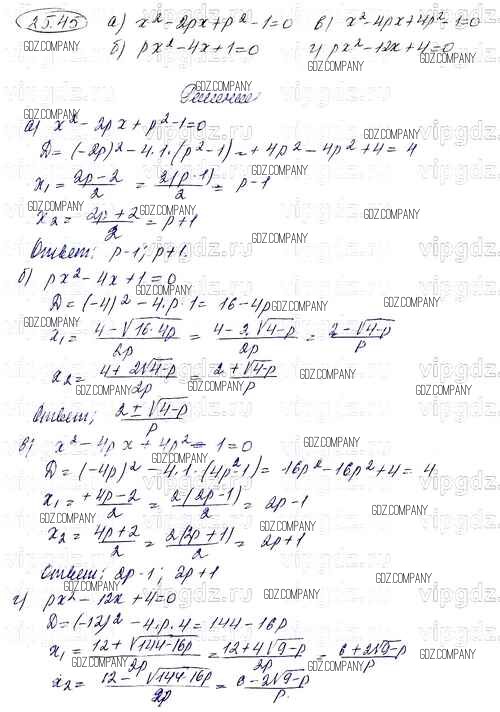 25.45 а) x² - 2px + p² - 1 = 0 в) x² - 4px + 4p² - 1 = 0
б) px² - 4x + 1 = 0 г) px² - 12x + 4 = 0
Решение
а) x² - 2px + p² - 1 = 0
D = (-2p)² - 4·1·(p² - 1) = +4p² - 4p² + 4 = 4
x₁ = (2p - 2)/2 = 2(p - 1)/2 = p - 1
x₂ = (2p + 2)/2 = p + 1
Ответ: p - 1; p + 1.
б) px² - 4x + 1 = 0
D = (-4)² - 4·p·1 = 16 - 4p
x₁ = (4 - √(16-4p))/2p = (4 - 2√(4-p))/2p = (2 - √(4-p))/p
x₂ = (4 + 2√(4-p))/2p = (2 + √(4-p))/p
Ответ; (2 ± √(4-p))/p
в) x² - 4px + 4p² - 1 = 0
D = (-4p)² - 4·1·(4p² 1) = 16p² - 16p² + 4 = 4
x₁ = (+4p - 2)/2 = 2(2p - 1)/2 = 2p - 1
x₂ = (4p + 2)/2 = 2(2p + 1)/2 = 2p + 1
Ответ: 2p - 1; 2p + 1
г) px² - 12x + 4 = 0
D = (-12)² - 4·p·4 = 144 - 16p
x₁ = (12 + √(144-16p))/2p = (12 + 4√(9-p))/2p = (6 + 2√(9-p))/p
x₂ = (12 - √(144-16p))/2p = (6 - 2√(9-p))/p.
GDZ.COMPANY
vipgdz.ru